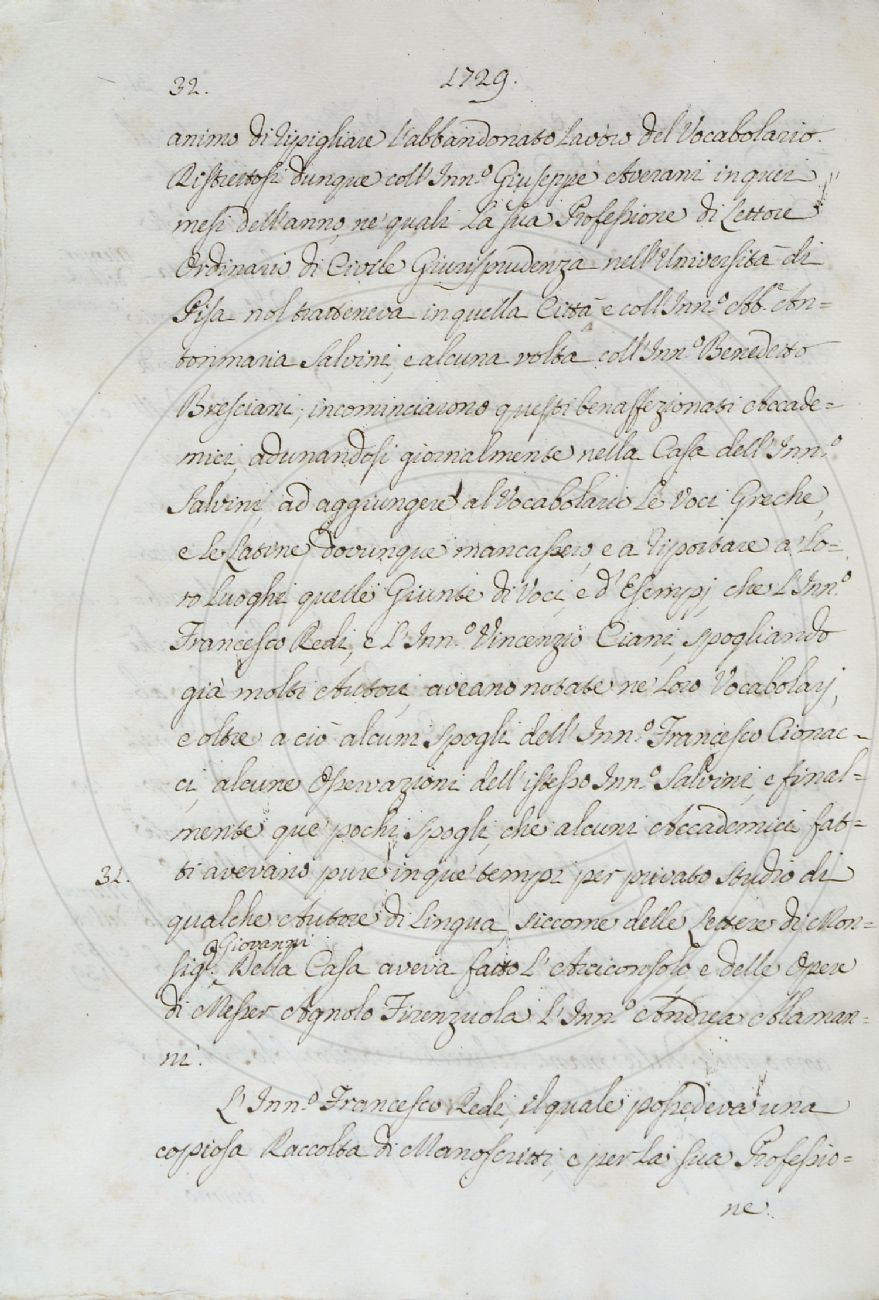 32. 1729.
animo di ripigliare l'abbandonato Lavoro del Vocabolario.
Ristrettosi dunque coll'Inn.º Giuseppe Averani in quei
mesi dell'anno, ne' quali la sua Professione di Lettore
Ordinario di Civile Giurisprudenza nell'Università di
Pisa nol tratteneva in quella Città e coll'Inn.º Ab.e An=
tonmaria Salvini, e alcuna volta coll'Inn.º Benedetto
Bresciani, incominciarono questi benaffezionati Accade=
mici, adunandosi giornalmente nella Casa dell'Inn.º
Salvini, ad aggiungere al Vocabolario le Voci Greche,
e le Latine dovunque mancassero, e a riportare a' Lo=
ro Luoghi quelle Giunte di Voci, e d'Esempj, che l'Inn.º
Francesco Redi, e l'Inn.º Vincenzio Ciani, spogliando
già molti Autori, aveano notate ne' Loro Vocabolarj,
e oltre a ciò alcuni spogli dell'Inn.º Francesco Cionac=
ci, alcune Osservazioni dell'istesso Inn.º Salvini, e final=
mente que' pochi spogli che alcuni Accademici fat=
31. ti avevano pure in que' tempi per privato studio di
qualche Autore di Lingua, siccome delle Lettere di Mon=
sig.r Giovanni Della Casa aveva fatto l'Accicorosolo, e delle Opere
di Messer Agnolo Firenzuola l'Inn.º Andrea Alaman=
ni.
L'Inn.º Francesco Redi, il quale possedeva una
copiosa Raccolta di Manoscritti, e per la sua Professio=
ne